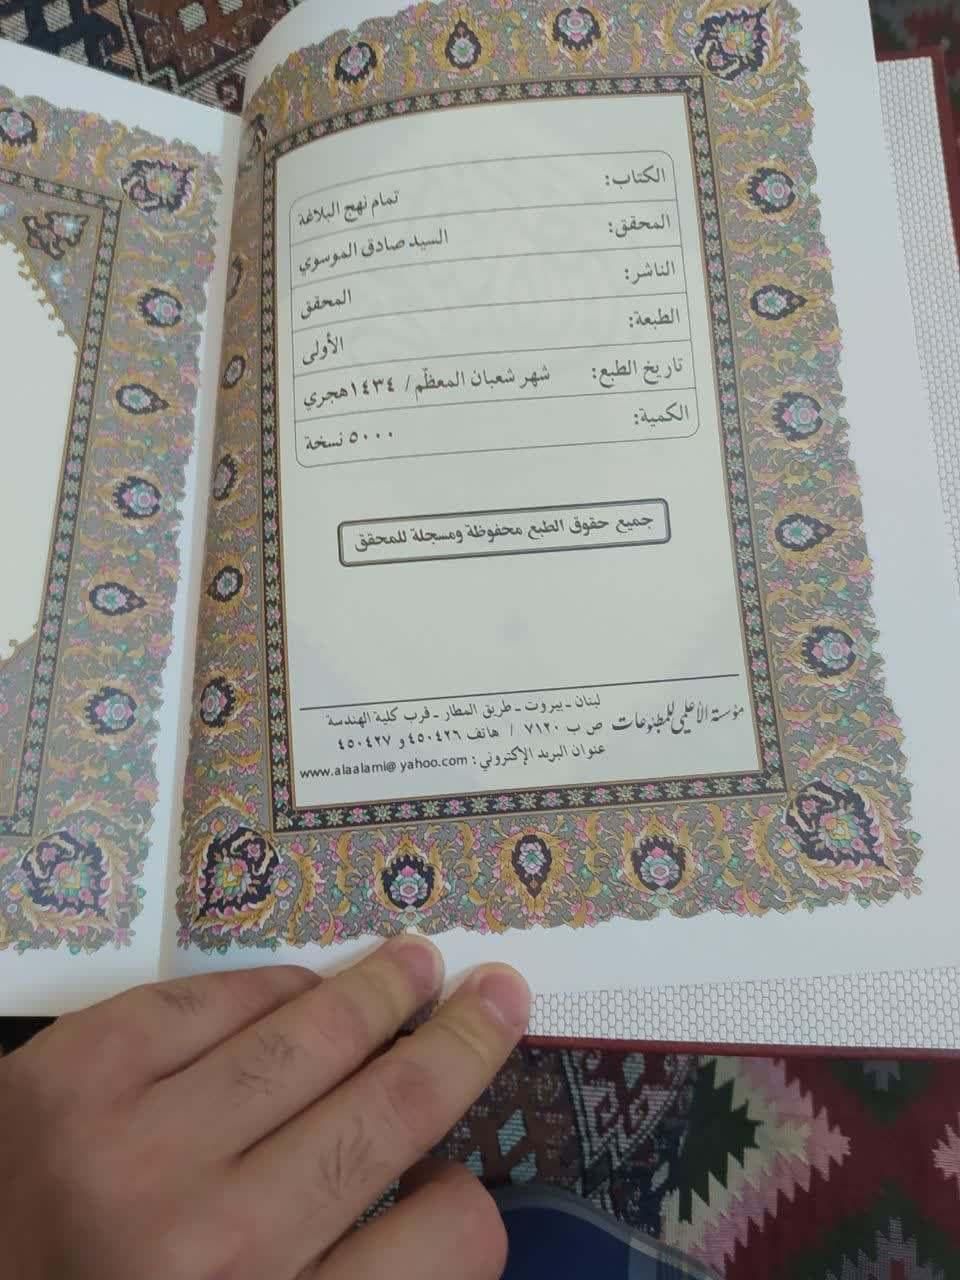 الكتاب: تمام نهج البلاغة
المحقق: السيد صادق الموسوي
الناشر: المحقق
الطبعة: الأولى
تاريخ الطبع: شهر شعبان المعظّم / ١٤٣٤هجري
الكمية: ٥٠٠٠ نسخة
جميع حقوق الطبع محفوظة ومسجلة للمحقق
مؤسسة الأعلمي للمطبوعات
لبنان ـ بيروت ـ طريق المطار ـ قرب كلية الهندسة
ص ب ٧١٢٠ / هاتف ٤٥٠٤٢٦ و ٤٥٠٤٢٧
عنوان البريد الإكتروني : www.alaalami@yahoo.com